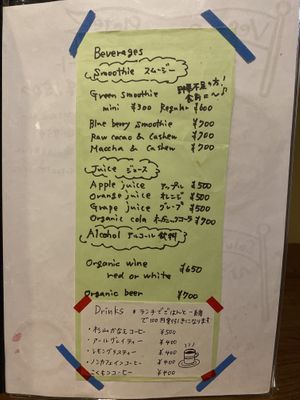 Beverages
Smoothie スムージー
野菜不足の方!
Green smoothie
mini ¥300 Regular ¥600
Blue berry smoothie ¥700
Raw cacao & Cashew ¥700
Maccha & Cashew ¥700
Juice ジュース
Apple juice アップル ¥500
Orange juice オレンジ ¥500
Grape juice グレープ ¥500
Organic cola オーガニックコーラ ¥700
Alcohol アルコール飲料
Organic wine ¥650
red or white
Organic beer ¥700
Drinks * ランチでごはんと一緒
で100円割引きになります
・杉山かなえコーヒー ¥500
・アールグレイティー ¥400
・レモングラスティー ¥400
・ノンカフェインコーヒー ¥400
・こくもつコーヒー ¥400